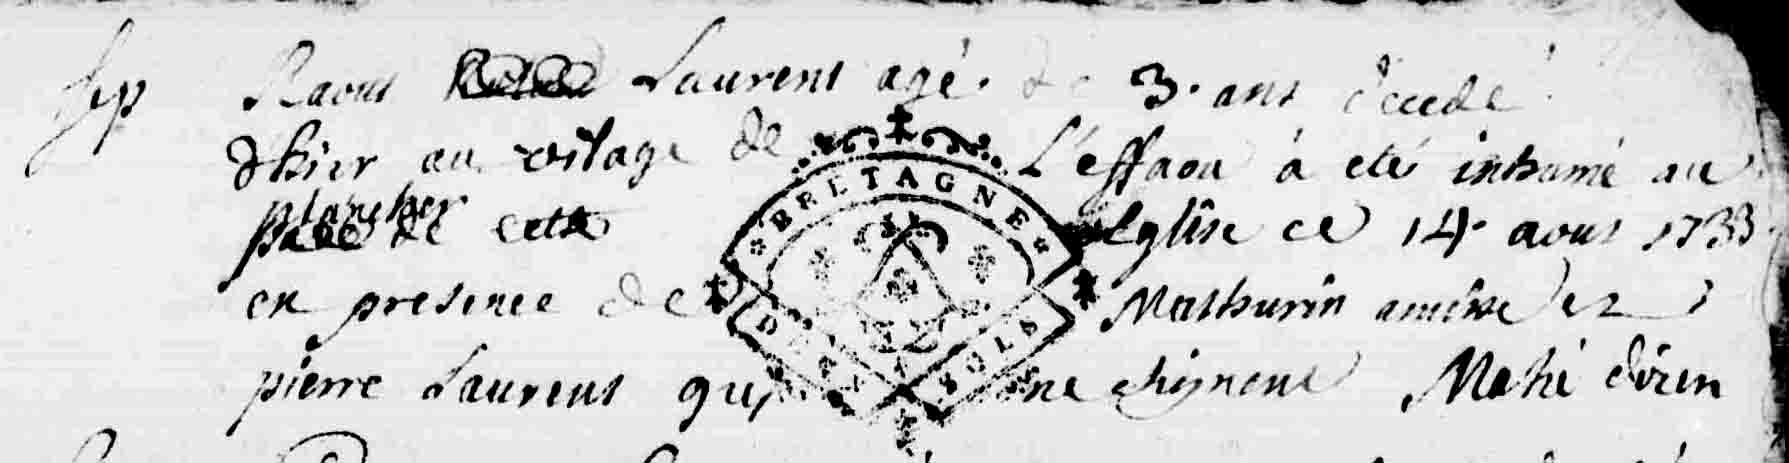 sep Raout Laurent agé de 3. ans decedé
d'hier au vilage de L'effaou à eté inhumé au
plancher de cette Eglise ce 14. aout 1733.
en presence de Mathurin et
pierre Laurent qui ne signent Mahé
BRETAGNE
DEUX SOLS